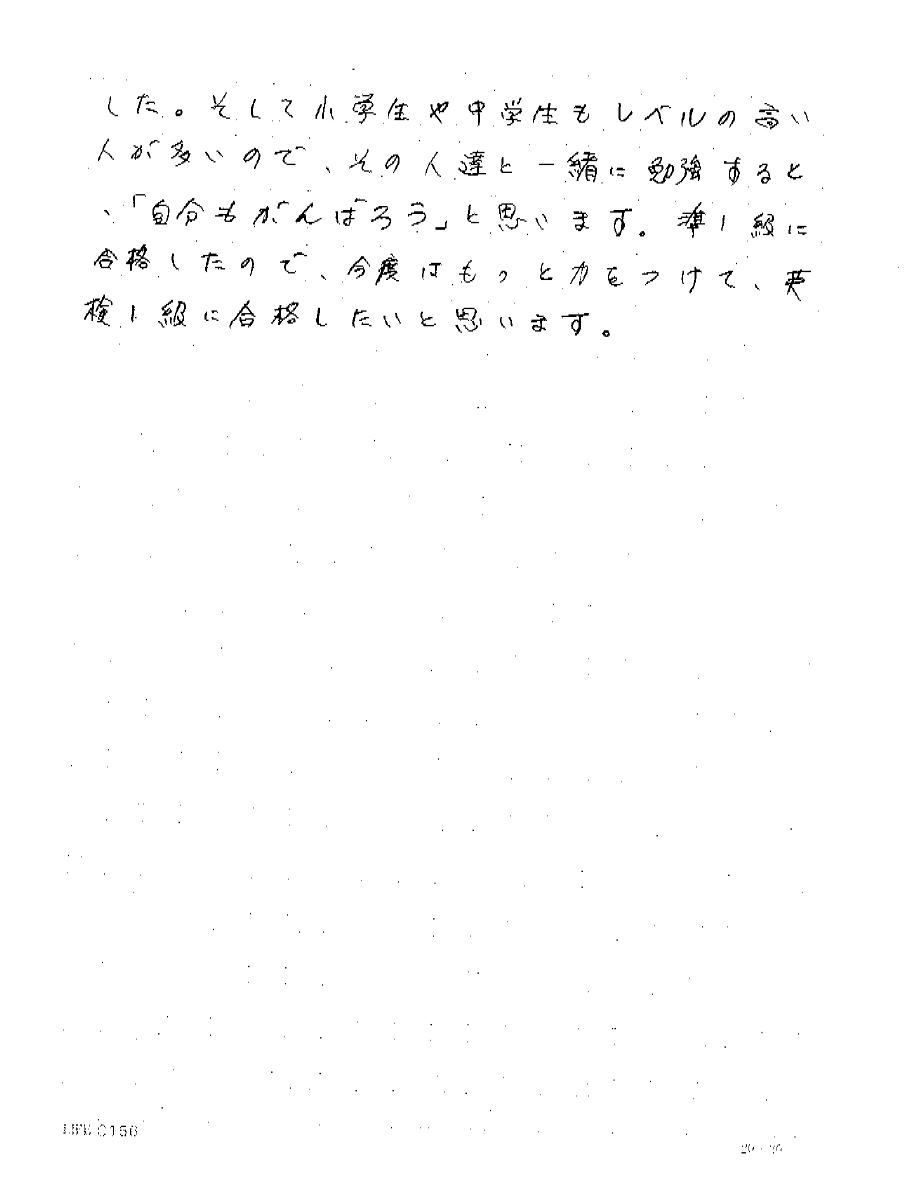 した。そして小学生や中学生もレベルの高い
人が多いので、その人達と一緒に勉強すると
、「自分もがんばろう」と思います。準1級に
合格したので、今度はもっと力をつけて、英
検1級に合格したいと思います。
LIFE C156